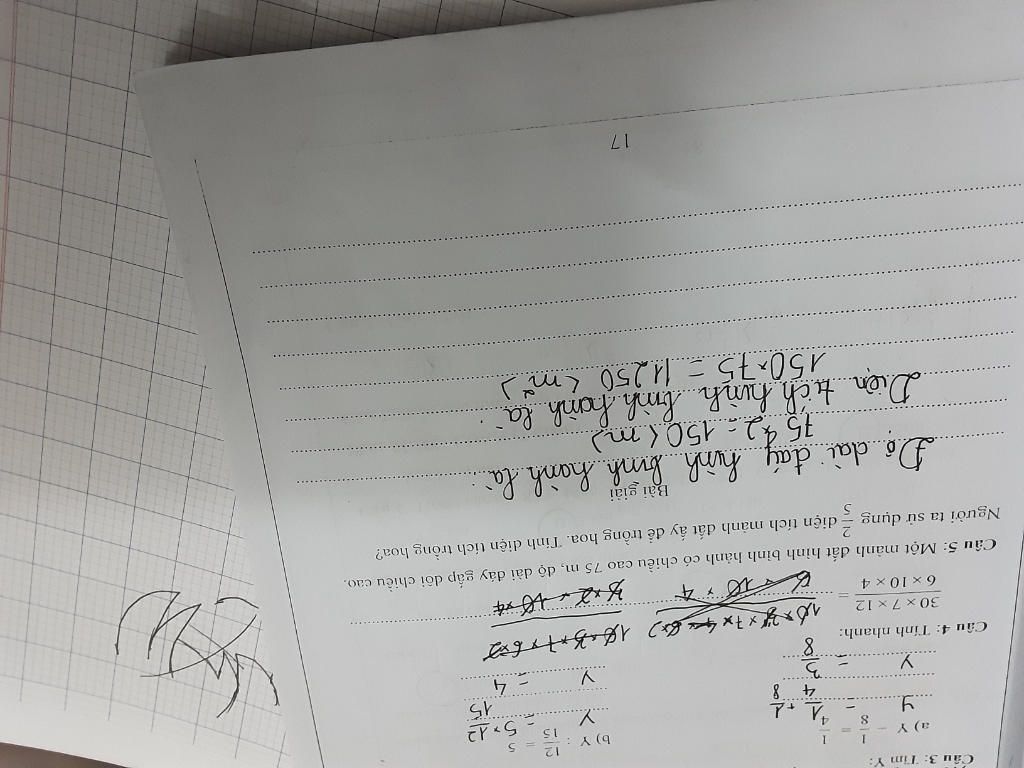 Câu 3: Tìm Y:
a) Y - 1/8 = 1/4
b) Y : 12/15 = 5
y = 1/4 + 1/8
Y = 5 × 12/15
Y = 3/8
Y = 4
Câu 4: Tính nhanh:
30 × 7 × 12 / 6 × 10 × 4 =
Câu 5: Một mảnh đất hình bình hành có chiều cao 75 m, độ dài đáy gấp đôi chiều cao.
Người ta sử dụng 2/5 diện tích mảnh đất ấy để trồng hoa. Tính diện tích trồng hoa?
Bài giải
Độ dài đáy hình bình hành là:
75 × 2 = 150 (m)
Diện tích hình bình hành là:
150 × 75 = 11250 (m²)
17